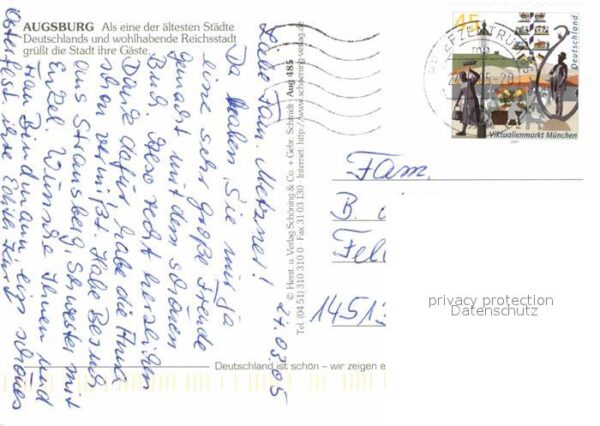 AUGSBURG Als eine der ältesten Städte
Deutschlands und wohlhabende Reichsstadt
grüßt die Stadt ihre Gäste.
24.03.05
Liebe Fam. Metzner!
Da haben Sie mir ja
eine sehr große Freude
gemacht mit dem schönen
Brief. Also recht herzlichen
Dank dafür habe die
schon vermißt. Habe Besuch
aus Strausberg, Schwester mit
Enkel. Wünsche Ihnen und
Frau Bindmann ein schönes
Osterfest ihre Edith
© Herst. u. Verlag Schöning & Co. + Gebr. Schmidt | Aug 485
Tel. (04 51) 310 310 0 · Fax 31 03 130 · Internet: http://www.schoening-verlag.de
45
Deutschland
Viktualienmarkt München
BRIEFZENTRUM
Fam.
B
Fel
1451
privacy protection
Datenschutz
Deutschland ist schön – wir zeigen e